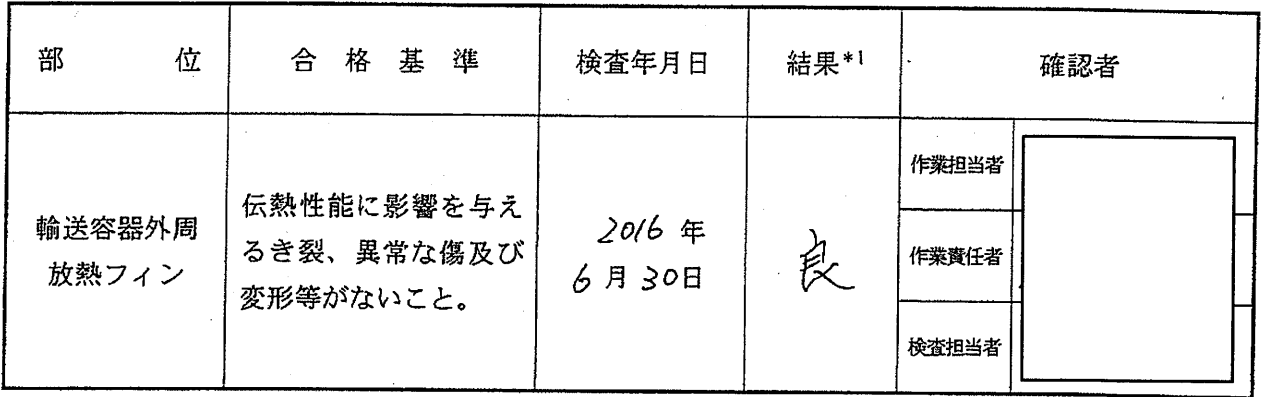 部位 合格基準 検査年月日 結果*1 確認者
輸送容器外周
放熱フィン
伝熱性能に影響を与え
るき裂、異常な傷及び
変形等がないこと。
2016年
6月30日
良
作業担当者
作業責任者
検査担当者